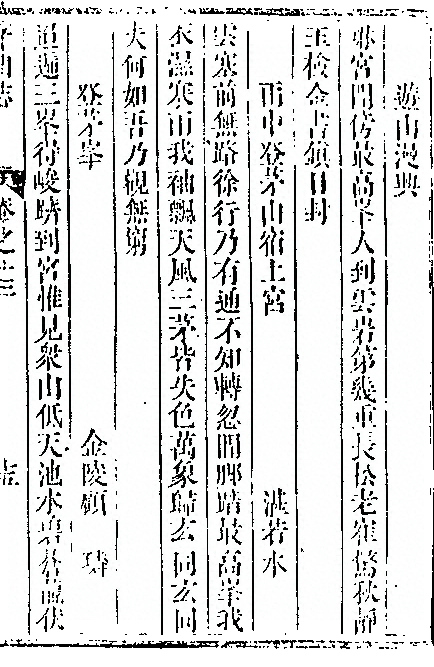 遊山漫興
琳宮門傍最高峯人到雲岩第幾重長松老崔驚秋靜
玉檢金書鎮日封
雨中登茅山宿上宮　湛若水
雲塞前無路徐行乃有通不知轉忽間脚踏最高峯我
衣濕寒雨我袖飄天風三茅皆失色萬象歸玄同玄同
夫何如吾乃觀無窮
登茅峯　金陵顧璘
迢遞三峯徑峻躋到宮惟見衆山低天池水碧蒼龍伏
茅山志　卷之十三